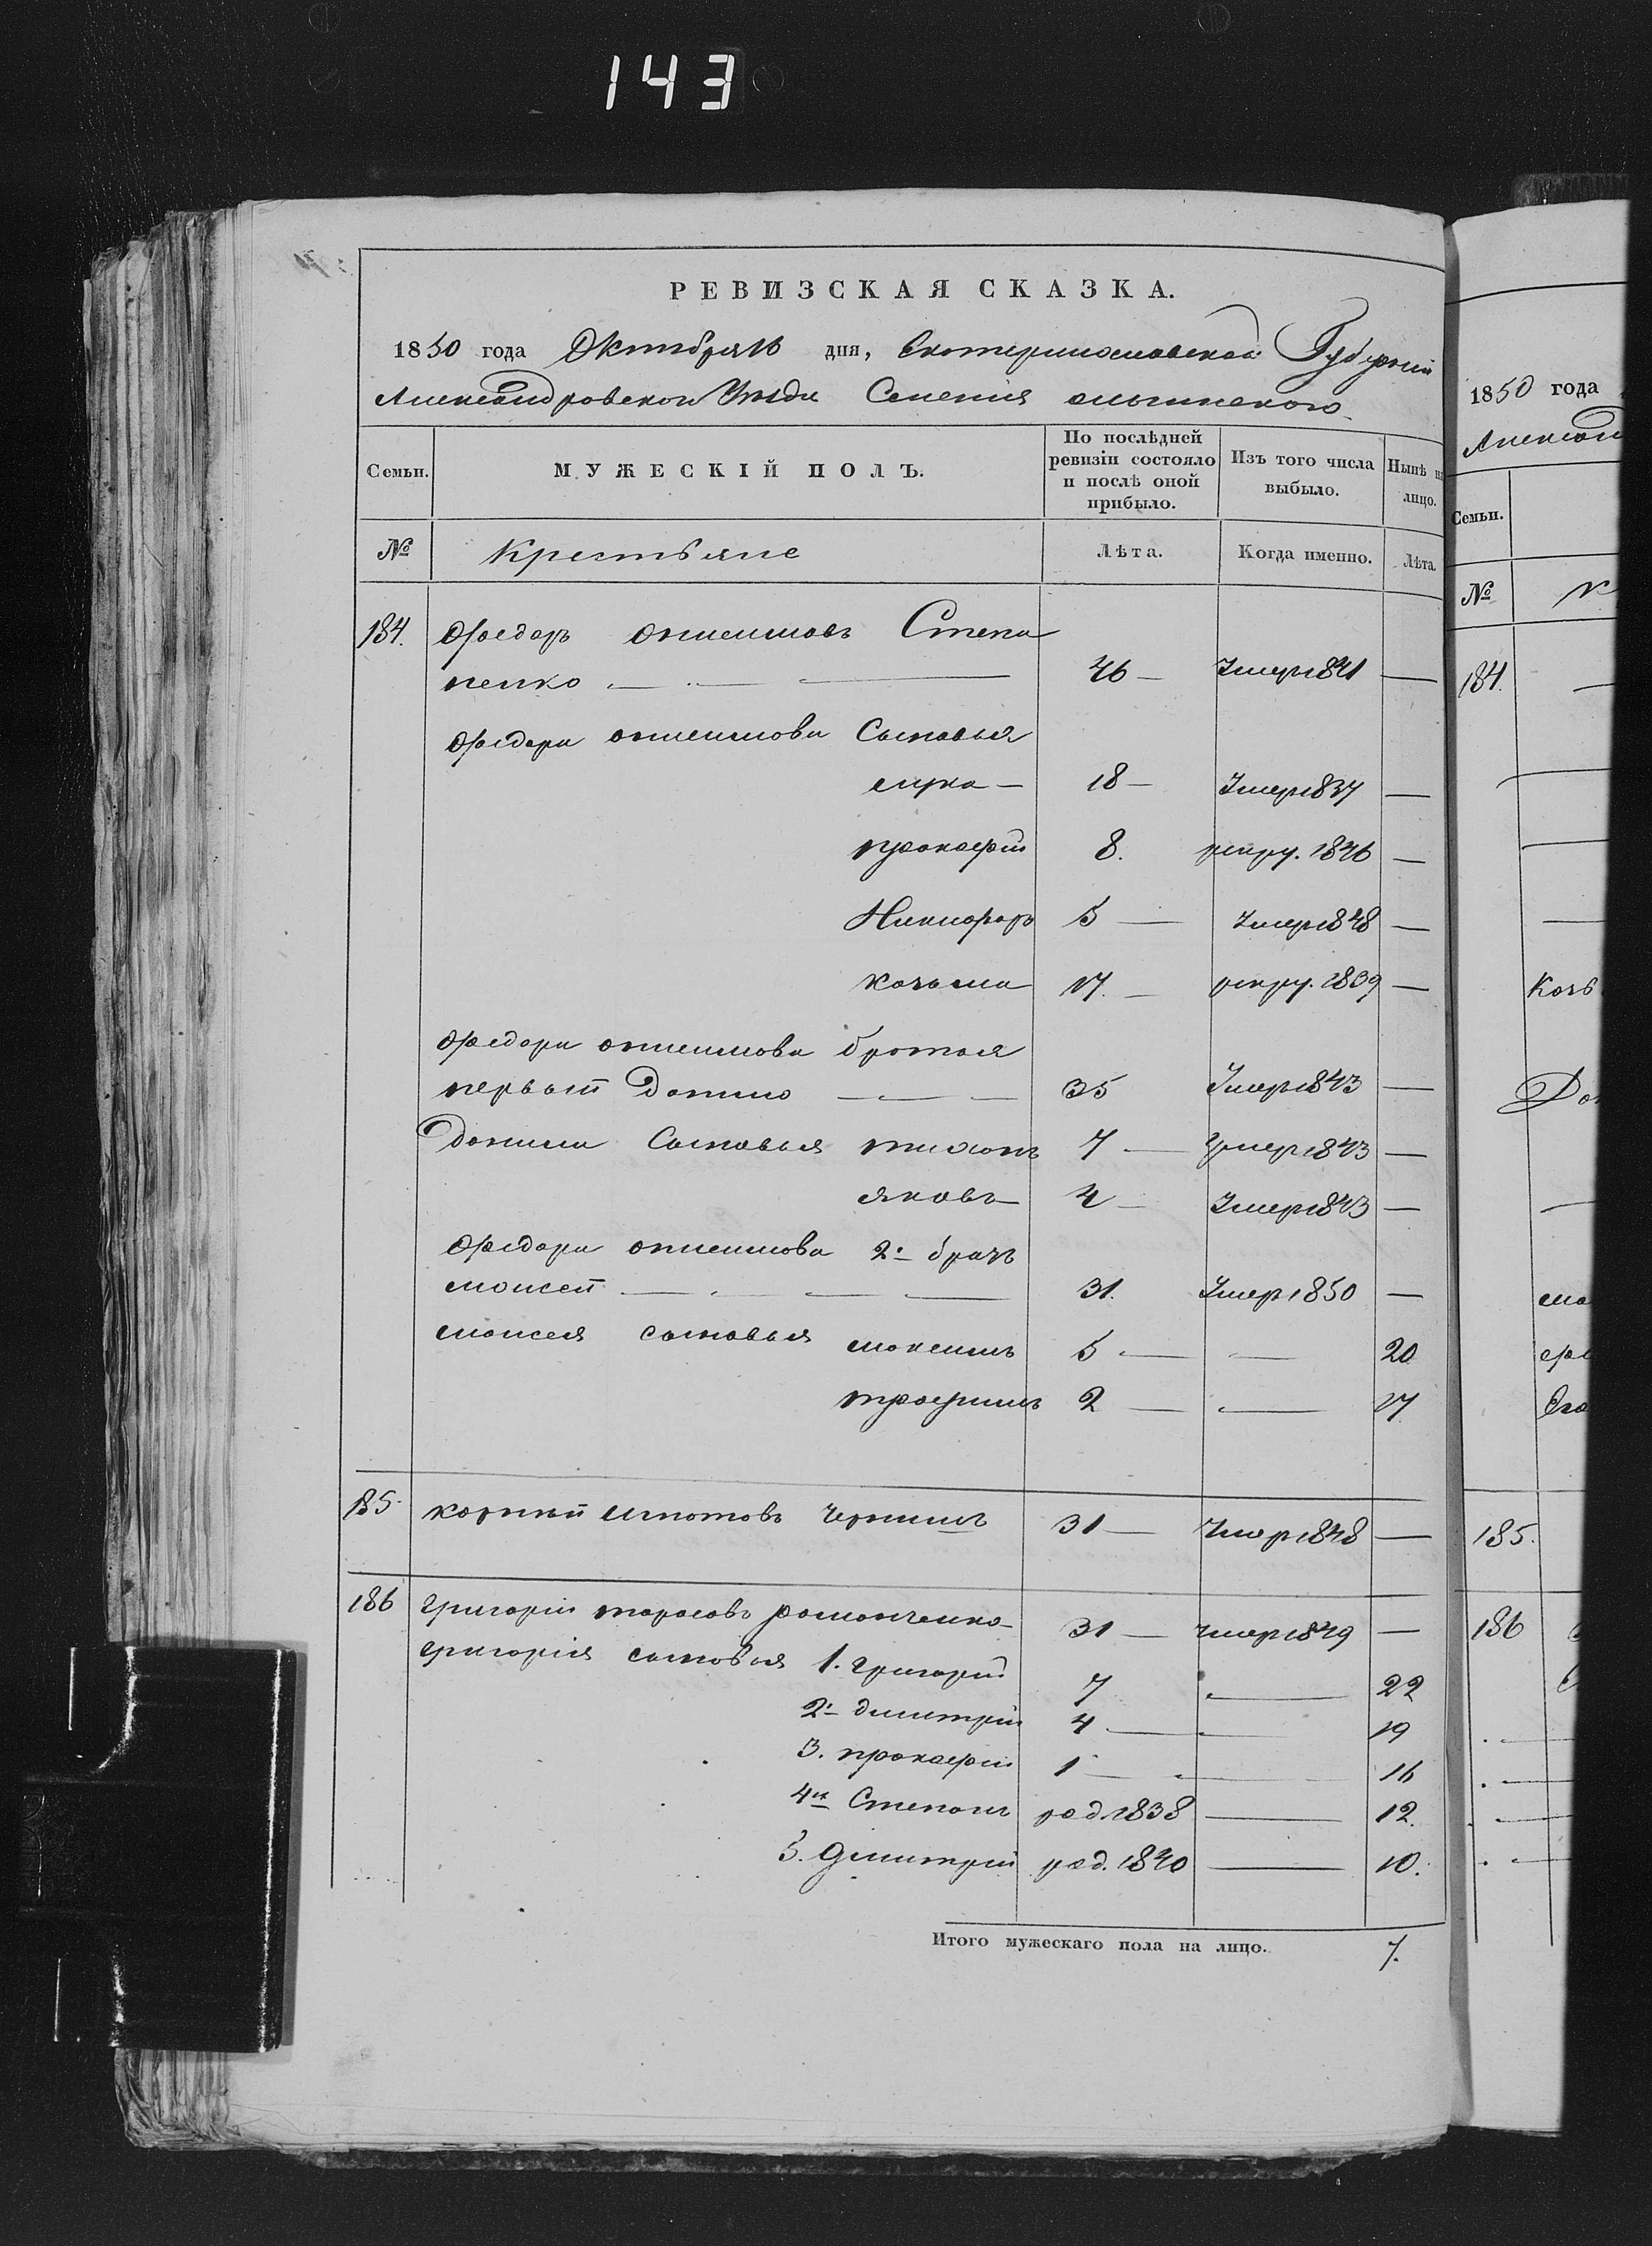 143
РЕВИЗСКАЯ СКАЗКА.
1850 года Октября 16 дня, Екатеринославской Губернии
Александровского Уезда Селения
Семьи. МУЖЕСКІЙ ПОЛЪ. По послѣдней ревизіи состояло и послѣ оной прибыло. Изъ того числа выбыло. Нынѣ на лицо.
№ Крестьяне Лѣта. Когда именно. Лѣта.
184. Федоръ Онисимовъ Степа
ненко 46 Умер 1841 —
Федора Онисимова Сыновья
18 — Умер 1837 —
Прокофий 8. рекру. 1846 —
Никифоръ 5 — Умер 1848 —
Козьма 17. — рекру. 1839 —
Федора Онисимова братья
первый Данило — 35 Умер 1843 —
Данила Сыновья Тихонъ 7 — Умер 1843 —
Яковъ 4 — Умер 1843 —
Федора Онисимова 2й братъ
Моисей — 31. Умер 1850 —
Моисея сыновья Максимъ 5 — — 20
Трофимъ 2 — — 17
185. Корній Игнатовъ Чернышъ 31 — Умер 1848 —
186 Григорій Тарасовъ Романченко 31 — Умер 1849 —
Григорія сыновья 1. Григорій 7 — 22
2й Дмитрій 4 — 19
3. Прокофій 1 — 16
4й Степанъ род. 1838 — 12.
5. Дмитрій род. 1840 — 10.
Итого мужескаго пола на лицо. 7.
1850 года
Александ
Семьи.
№ К
184.
Козь
До
мо
185.
186